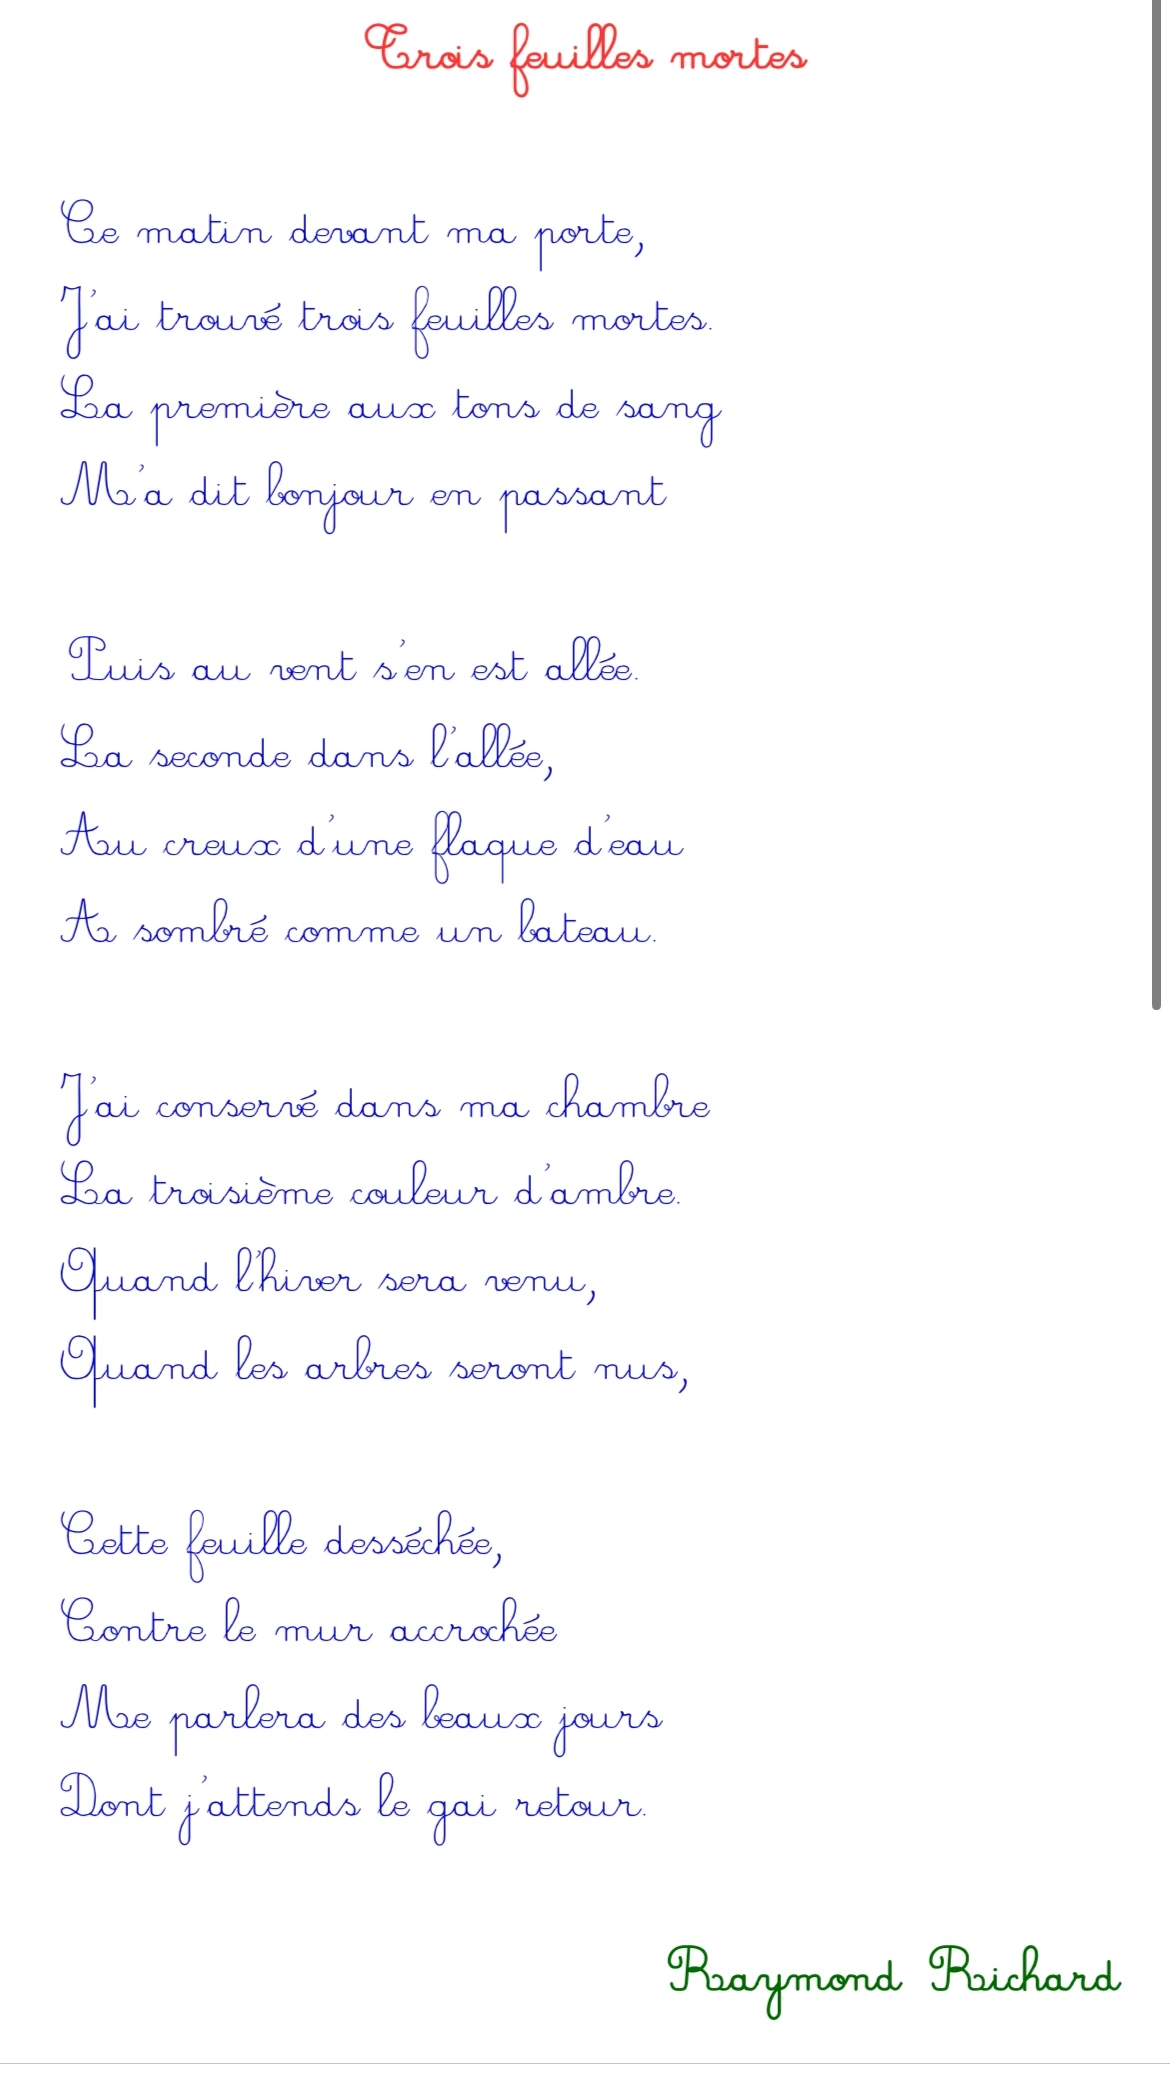 Trois feuilles mortes
Ce matin devant ma porte,
J'ai trouvé trois feuilles mortes.
La première aux tons de sang
M'a dit bonjour en passant
Puis au vent s'en est allée.
La seconde dans l'allée,
Au creux d'une flaque d'eau
A sombré comme un bateau.
J'ai conservé dans ma chambre
La troisième couleur d'ambre.
Quand l'hiver sera venu,
Quand les arbres seront nus,
Cette feuille desséchée,
Contre le mur accrochée
Me parlera des beaux jours
Dont j'attends le gai retour.
Raymond Richard